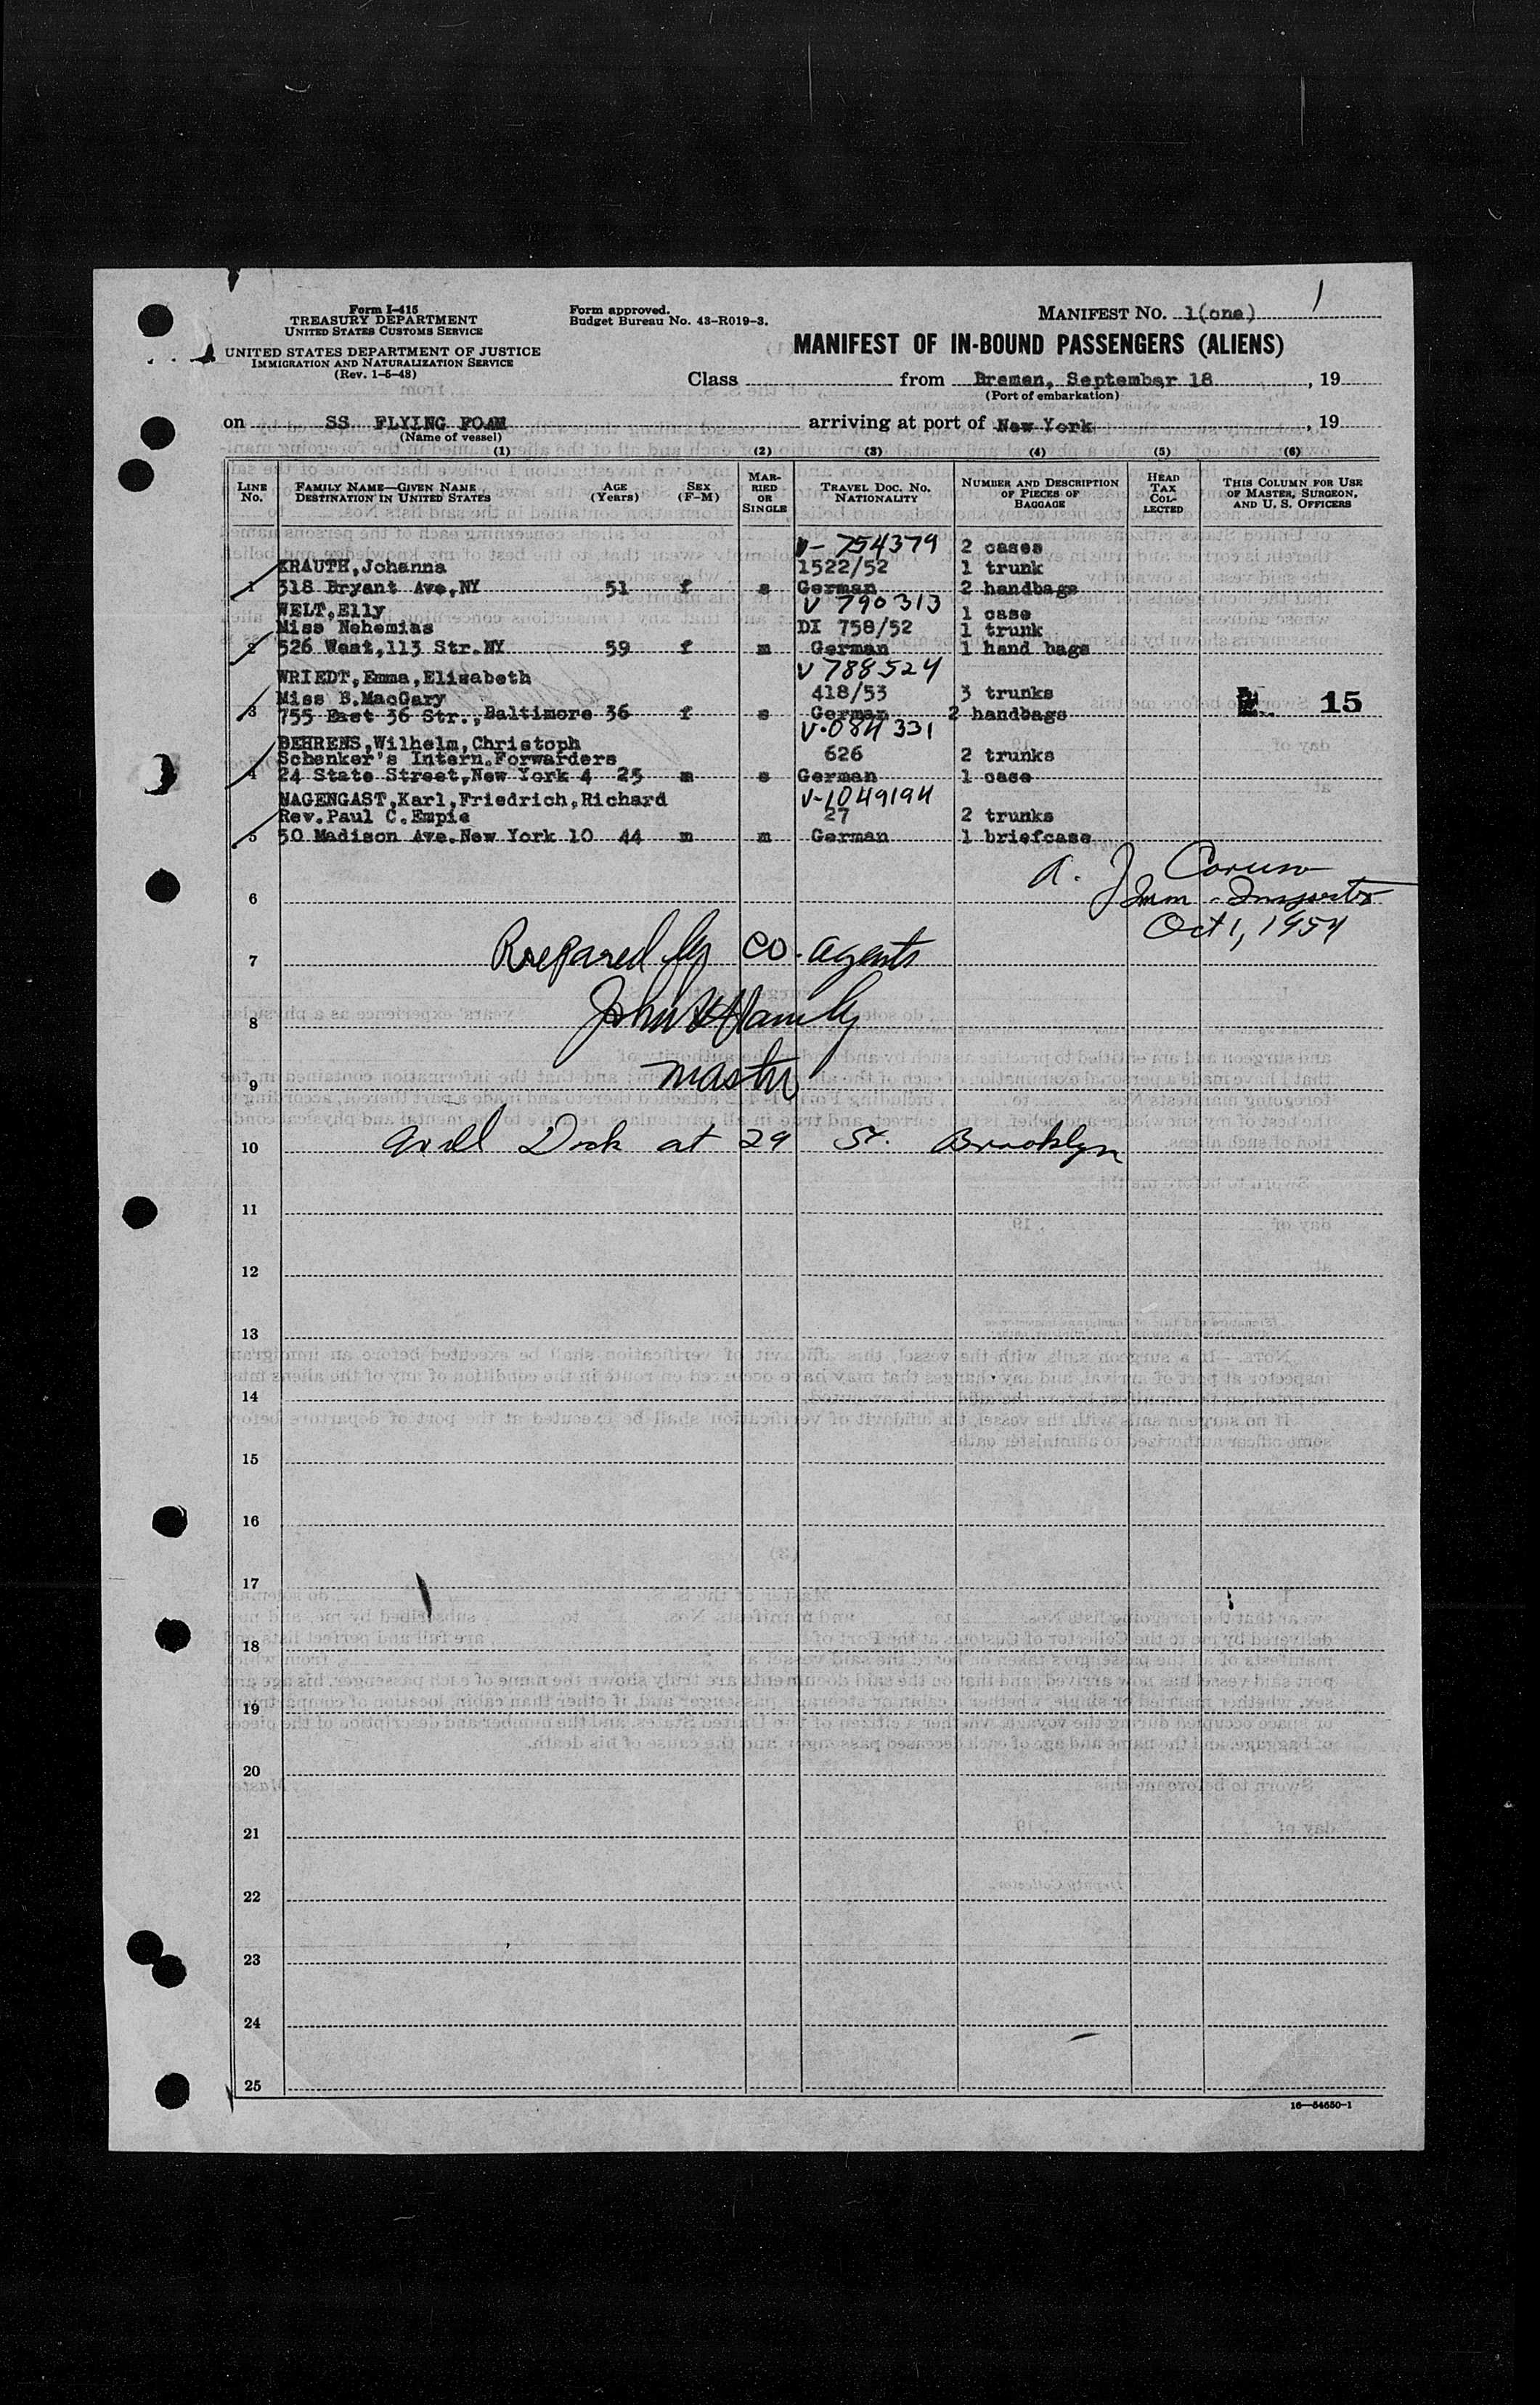 Form I-415
TREASURY DEPARTMENT
UNITED STATES CUSTOMS SERVICE
UNITED STATES DEPARTMENT OF JUSTICE
IMMIGRATION AND NATURALIZATION SERVICE
(Rev. 1-5-48)
Form approved.
Budget Bureau No. 43-R019-3.
MANIFEST NO. 1(one)
1
MANIFEST OF IN-BOUND PASSENGERS (ALIENS)
Class from Bremen, September 18, 19
(Port of embarkation)
on SS FLYING FOAM arriving at port of New York, 19
(Name of vessel)
(1) (2) (3) (4) (5) (6)
LINE No. FAMILY NAME—GIVEN NAME DESTINATION IN UNITED STATES AGE (Years) SEX (F-M) MARRIED OR SINGLE TRAVEL DOC. NO. NATIONALITY NUMBER AND DESCRIPTION OF PIECES OF BAGGAGE HEAD TAX COLLECTED THIS COLUMN FOR USE OF MASTER, SURGEON, AND U. S. OFFICERS
V- 754379 2 cases
KRAUTH, Johanna 1522/52 1 trunk
1 518 Bryant Ave, NY 51 f s German 2 handbags
WELT, Elly V 790313 1 case
Miss Nehemias DI 758/52 1 trunk
2 526 West, 113 Str. NY 59 f m German 1 hand bags
WRIEDT, Emma, Elisabeth V 788524
Miss B. MacGary 418/53 3 trunks
3 755 East 36 Str., Baltimore 36 f s German 2 handbags 15
BEHRENS, Wilhelm, Christoph V-084331
Schenker's Intern. Forwarders 626 2 trunks
4 24 State Street, New York 4 25 m s German 1 case
NAGENGAST, Karl, Friedrich, Richard V-1049194
Rev. Paul C. Empie 27 2 trunks
5 50 Madison Ave. New York 10 44 m m German 1 briefcase
A. J. Caruso
Imm Inspector
6
Oct 1, 1954
7 Prepared by co. agents
8 John
9 Master
10 Dock at 29 St. Brooklyn
11
12
13
14
15
16
17
18
19
20
21
22
23
24
25
16—54650-1